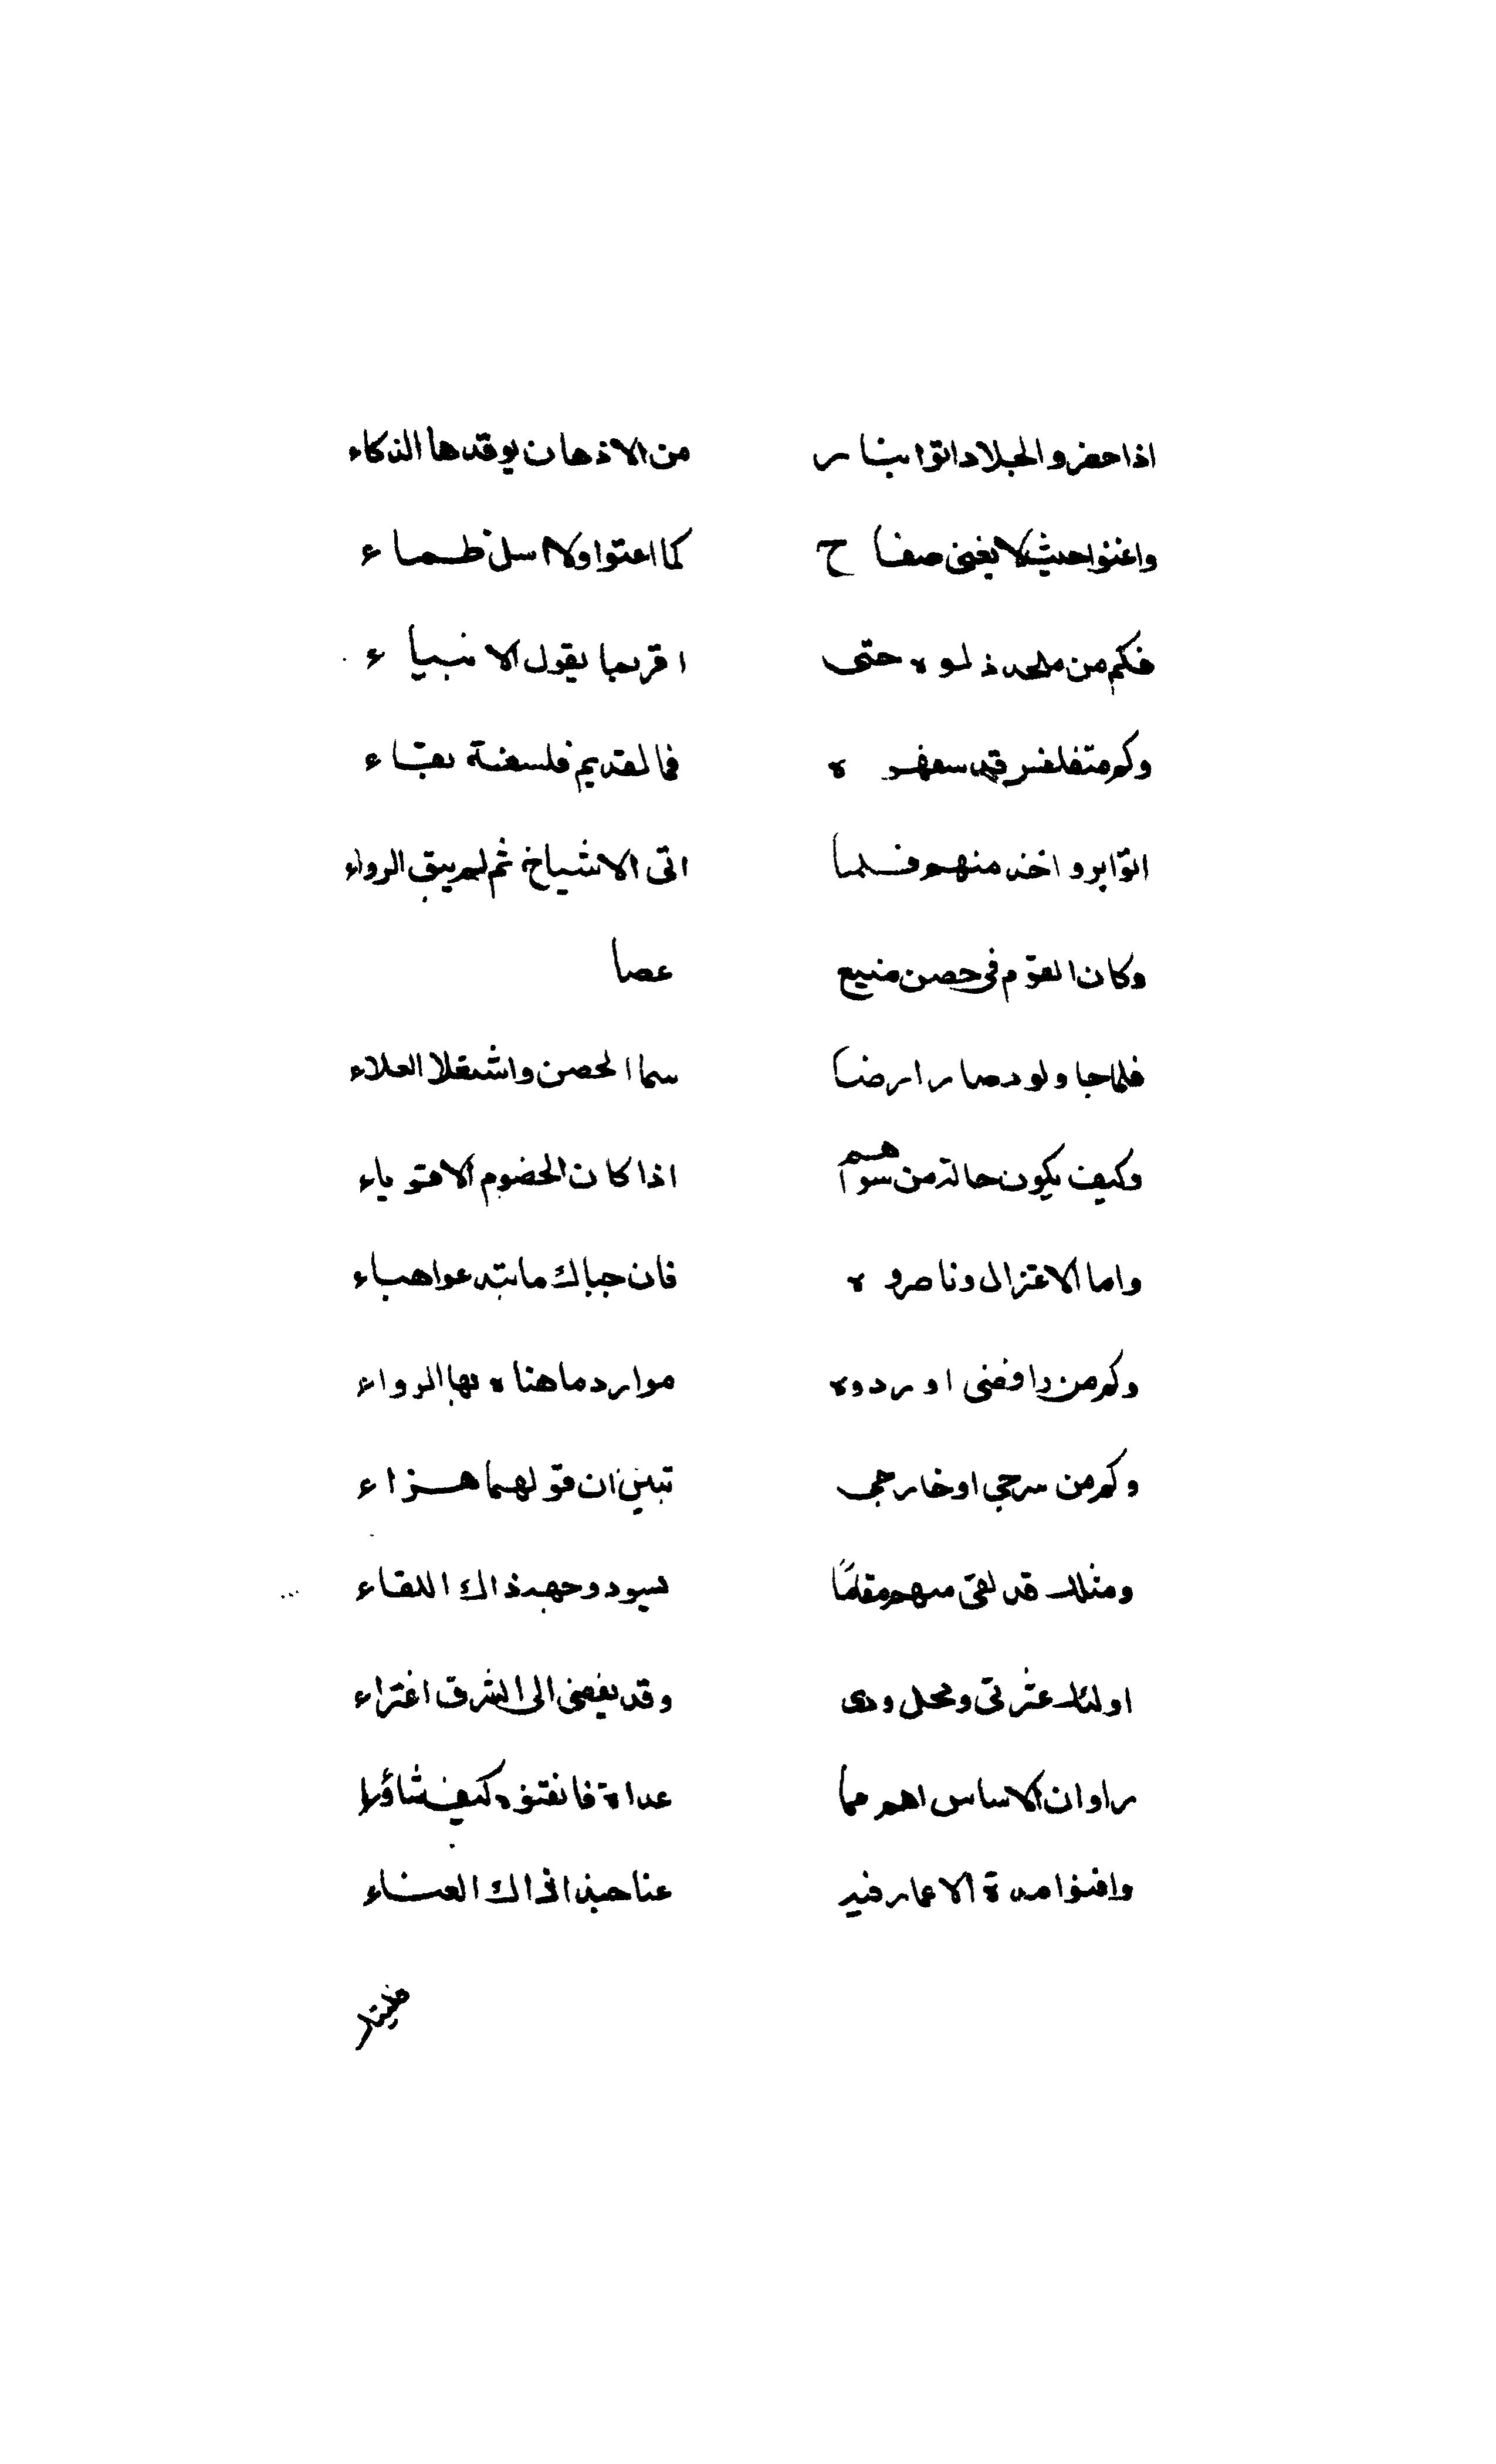 اذا حضروا الجلاد اتوا بنار من الاذهان يوقدها الذكاء
واغنوا حيث لا يغنى صفاح كما اغنوا ولا اسل ظماء
فكم من ملحد ذلوه حتى اقر بما يقول الانبياء
وكم متفلسف قد سفهوه فما لقديم فلسفة بقاء
اتوا برواخذ منهم فلما اتى الاشياخ ثم لم يبق الرواء
وكان القوم فى حصن منيع عصا
فلما جاولود صار ارضا سما الحصن واشتقلا العلاء
وكيف يكون حالة من سواهم اذا كان الخصوم الاقوياء
واما الاعتزال وناصروه فان جباك ما ابتدعوا هباء
وكم من رافضى اوردوه موارد ما هناه بها الرواء
وكم من مرجى او خارجى تبين ان قولهما هزاء
ومثلك قد لقى منهم مقاما يسود وجهه ذاك اللقاء
اولئك عثرتى ومحل ودى وقد يفضى الى الشرق اغتراء
راوا ان الاساس اهم مما عداه فانقنوه كيف شاؤا
وافنوا مدة الاعمار فيه عنا حبذا ذاك العناء